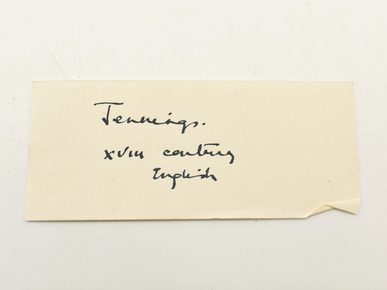 Jennings.
xviii century
English